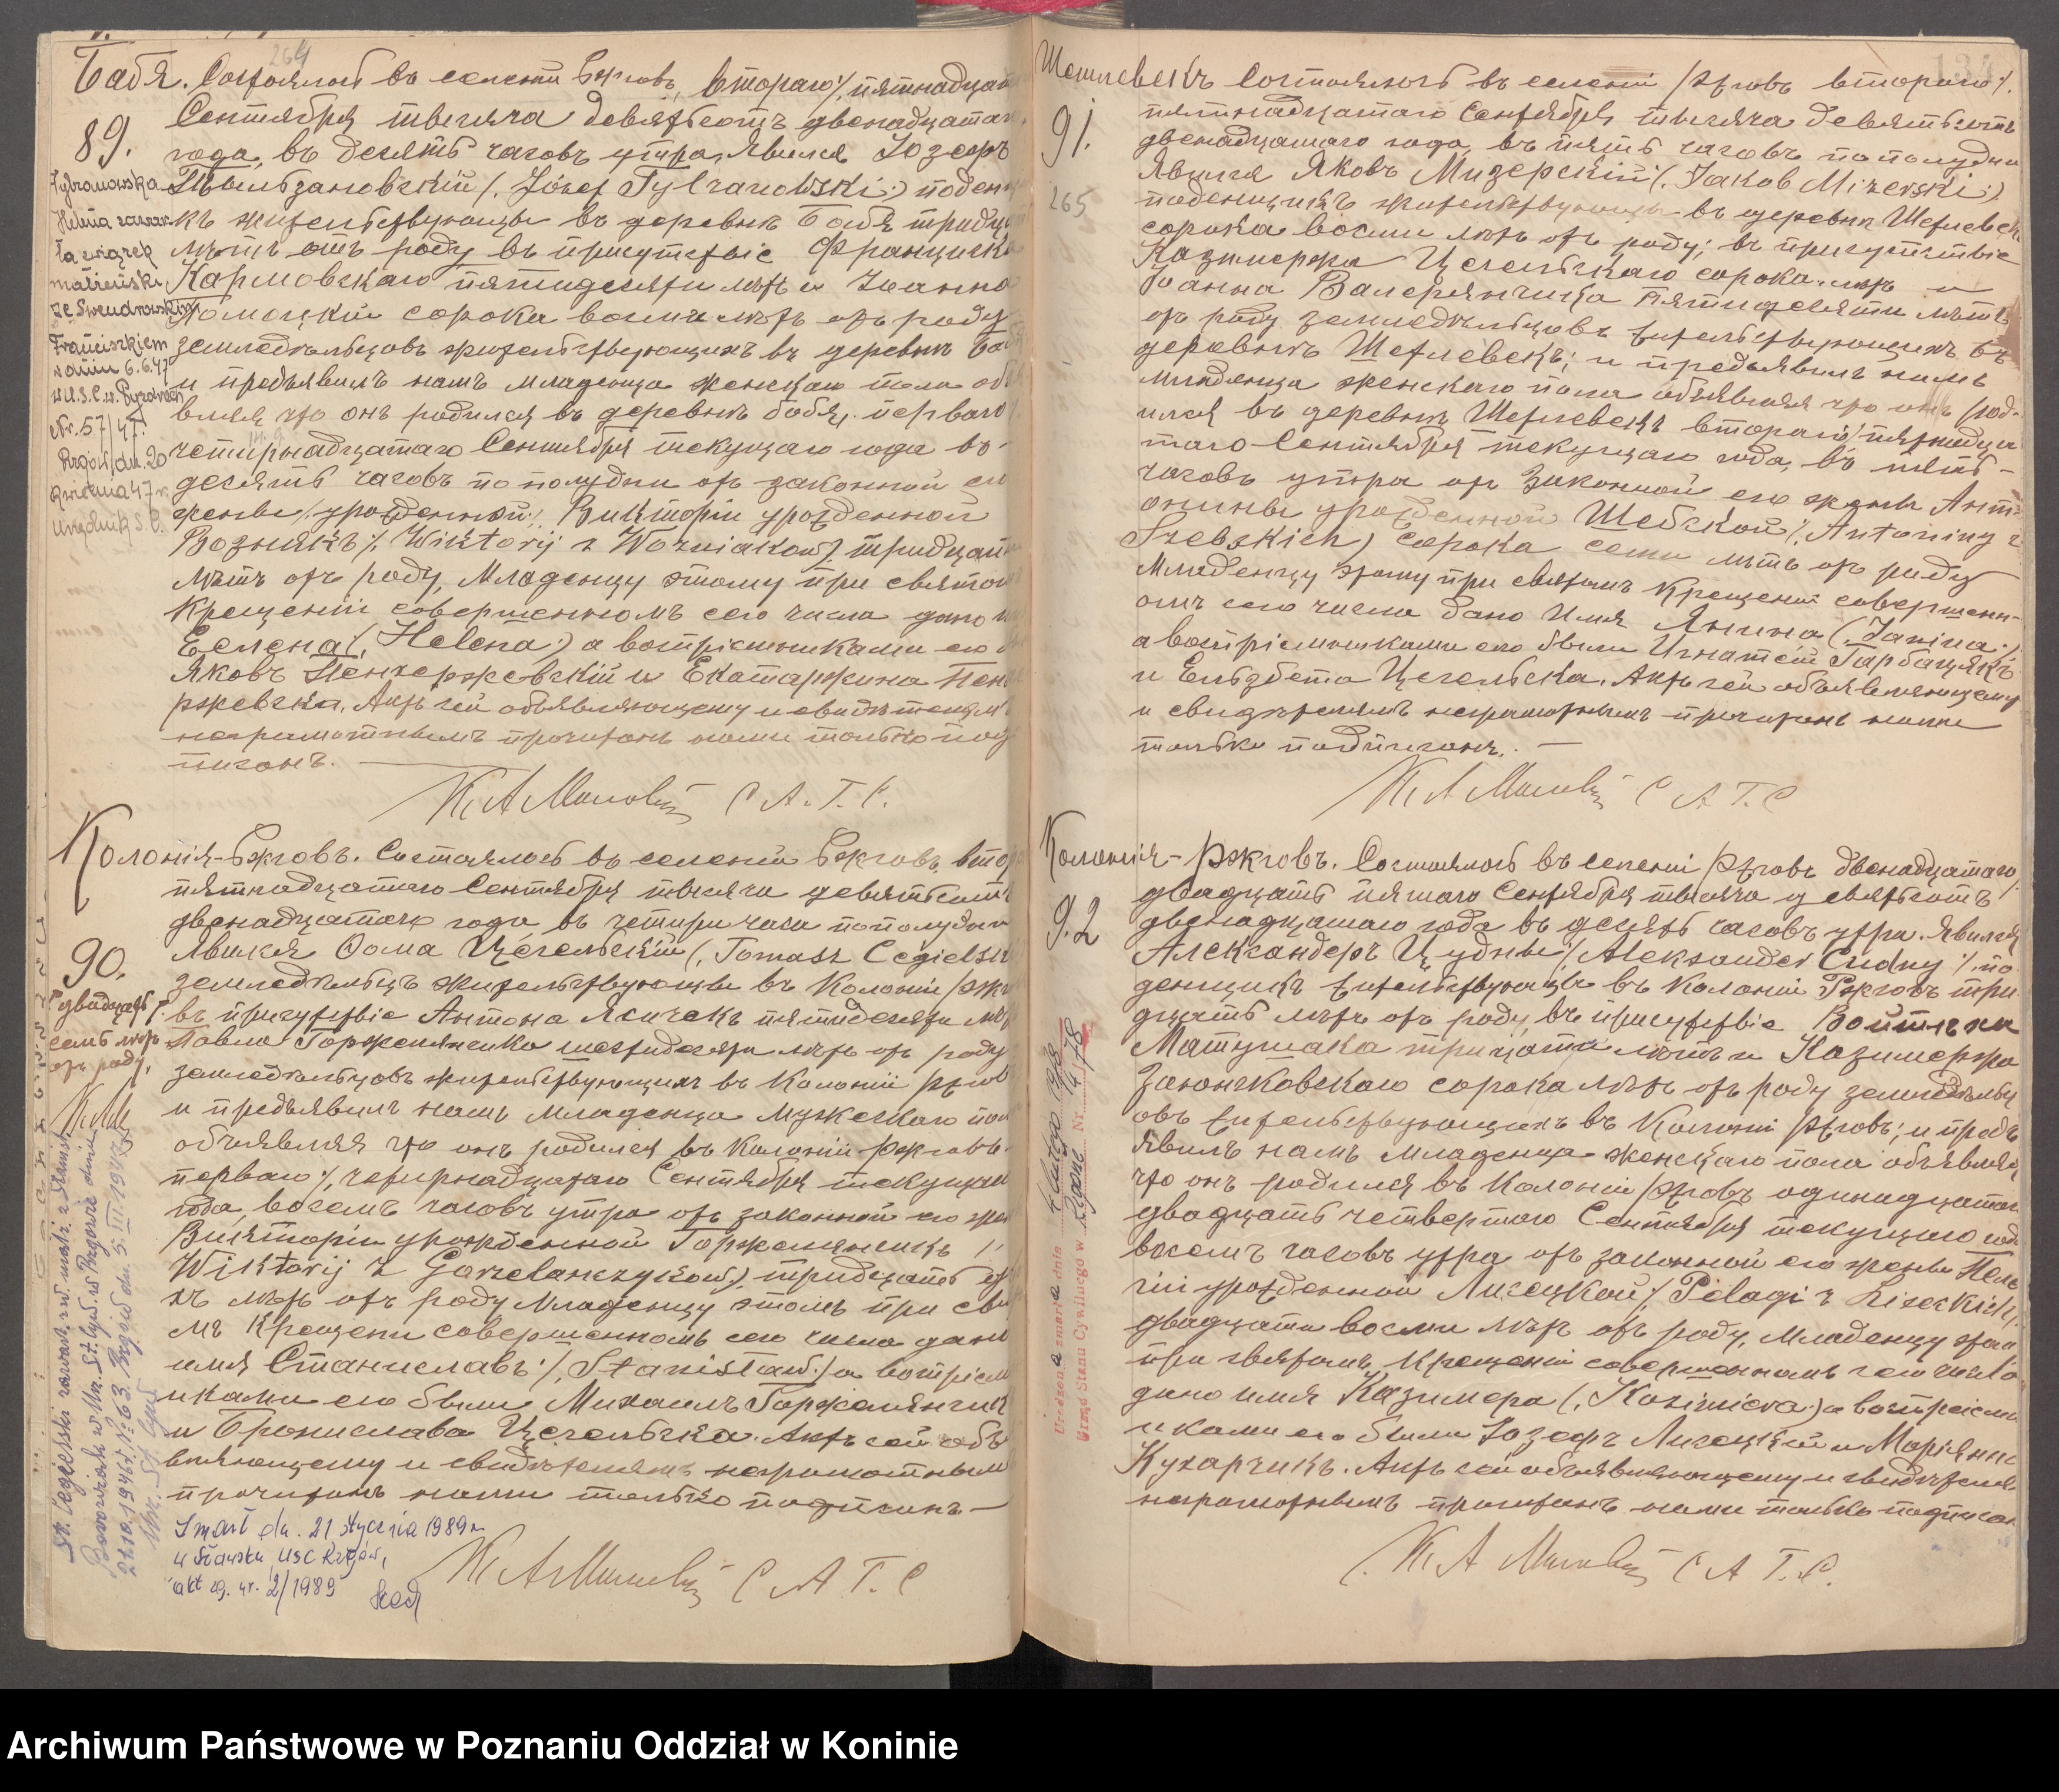 264
Бабя. Состоялось въ селеніи Ржговъ, втораго/пятнадцат
89.
Сентября тысяча девятьсотъ двенадцатаго
года, въ десять часовъ утра, явился Іозефъ
Тыльзановскій (Józef Tylzanowski) поденщи
къ жительствующій въ деревнѣ Бабя тридцать
лѣтъ отъ роду въ присутствіе Францишка
Кармовскаго пятидесяти лѣтъ и Іоанна
сорока восьми лѣтъ отъ роду
земледѣльцовъ жительствующихъ въ деревнѣ Бабя
и предъявилъ намъ младенца женскаго пола объя
вляя что онъ родился въ деревнѣ Бабя, перваго/
четырнадцатаго Сентября текущаго года въ
десять часовъ по полудни отъ законной его
жены урожденной Викторіи урожденной
Вознякъ/. Wiktorij z Woźniaków/ тридцати
лѣтъ отъ роду, Младенцу этому при святомъ
крещеніи совершенномъ сего числа дано имя
Еелена (Helena) а воспріемниками его были
Яковъ и Екатаржина
ржевска. Актъ сей объявляющему и свидѣтелямъ
неграмотнымъ прочитанъ нами только под
писанъ.
С. А. Г. С.
Helena zawar-
ła związek
małżeński
ze Swendrowskim
Franciszkiem
w dniu 6.6.47
w U.S.C. w Pyzdrach
Nr. 57/47.
Rzgów dn. 20
kwietnia 47 r.
Urzędnik S.C.
Колонія-Ржговъ. Состоялось въ селеніи Ржговъ, втор
90.
пятнадцатаго Сентября тысяча девятьсотъ
двенадцатаго года, въ четыри часа пополудни
явился Ѳома Цегельскій (Tomasz Cegielski
земледѣлецъ жительствующій въ Колоніи Ржг
въ присутствіе Антона Ясичекъ пятидесяти лѣтъ
Павла Горжелянчика шестидесяти лѣтъ отъ роду
земледѣльцовъ жительствующихъ въ Колоніи Ржгов
и предъявилъ намъ младенца мужескаго пол
объявляя что онъ родился въ Колоніи-Ржговъ
перваго/, четырнадцатаго Сентября текущаго
года, восемь часовъ утра отъ законной его жен
Викторіи урожденной Горжелянчикъ /.
Wiktorij z Gorzelańczyków) тридцать
лѣтъ отъ роду Младенцу этомъ при свя
мъ крещени совершенномъ сего числа дано
имя Станиславъ/. Stanisław/ а воспріем
никами его были Михаилъ Горжелянчикъ
и Брониславa Цегельска. Актъ сей объ
вляющему и свидѣтелямъ неграмотнымъ
прочитанъ нами только подписанъ
С. А. Г. С
двадцать
семь лѣтъ
отъ роду.
St. Cegielski zawarł zw. małż. z
Zmarł dn. 21 stycznia 1989 r.
w Sławsku USC Rzgów,
akt zg. nr. 2/1989
Шетлевекъ Состоялось въ селеніи Ржговъ втораго/.
91.
265
пятнадцатаго Сентября тысяча девятьсотъ
двенадцатаго года, въ пять часовъ по полудни
Явился Яковъ Мизерскій (Jakob Mizerski)
поденщикъ жительствующій въ деревнѣ Шетлевекъ
сорока восьми лѣтъ отъ роду; въ присутствіе
Казимержа Цегельскаго сорока лѣтъ и
Іоанна Валерянчика пятидесяти лѣтъ
отъ роду земледѣльцовъ жительствующихъ въ
деревнѣ Шетлевекъ; и предъявилъ намъ
младенца женскаго пола объявляя что онъ род-
ился въ деревнѣ Шетлевекъ втораго/пятнадца
таго Сентября текущаго года, въ пять
часовъ утра отъ законной его жены Ант-
онины урожденной Шебской/. Antoniny z
Szebskich) сорока семи лѣтъ отъ роду
Младенцу этому при святомъ крещеніи совершенн-
омъ сего числа дано имя Янина (Janina)
а воспріемниками его были Игнатій Гарбацякъ
и Ельзбета Цегельска. Актъ сей объявляющему
и свидѣтелямъ неграмотнымъ прочитанъ нами
только подписанъ.
С А Г. С
Колонія-Ржговъ. Состоялось въ селеніи Ржговъ двенадцатаго/
92
двадцать пятаго Сентября тысяча девятьсотъ
двенадцатаго года въ десять часовъ утра. Явился
Александеръ Цудны/. Aleksander Cudny/. по
денщикъ жительствующій въ Колоніи Ржговъ три
дцать лѣтъ отъ роду, въ присутствіе Войтѣха
Матушака тридцати лѣтъ и Казимержа
Заіончковскаго сорока лѣтъ отъ роду земледѣльц
овъ жительствующихъ въ Колоніи Ржговъ; и предъ
явилъ намъ младенца женскаго пола объявляя
что онъ родился въ Колоніи Ржговъ одинадцатаго
двадцать четвертаго Сентября текущаго года
восемь часовъ утра отъ законной его жены Пеля
гіи урожденной Лисецкой/. Pelagi z Liseckich/.
двадцати восьми лѣтъ отъ роду, Младенцу этому
при святомъ крещеніи совершенномъ сего числа
дано имя Казимера (Kazimiera) а воспріемн
иками его были Іозефъ Лисецкій и Маріянна
Кухарчикъ. Актъ сей объявляющему и свидѣтелямъ
неграмотнымъ прочитанъ нами только подписан
С А Г. С.
Urodzona zmarła dnia 4 lutego 1978
Urząd Stanu Cywilnego w Rzgów Nr 14/78
Archiwum Państwowe w Poznaniu Oddział w Koninie